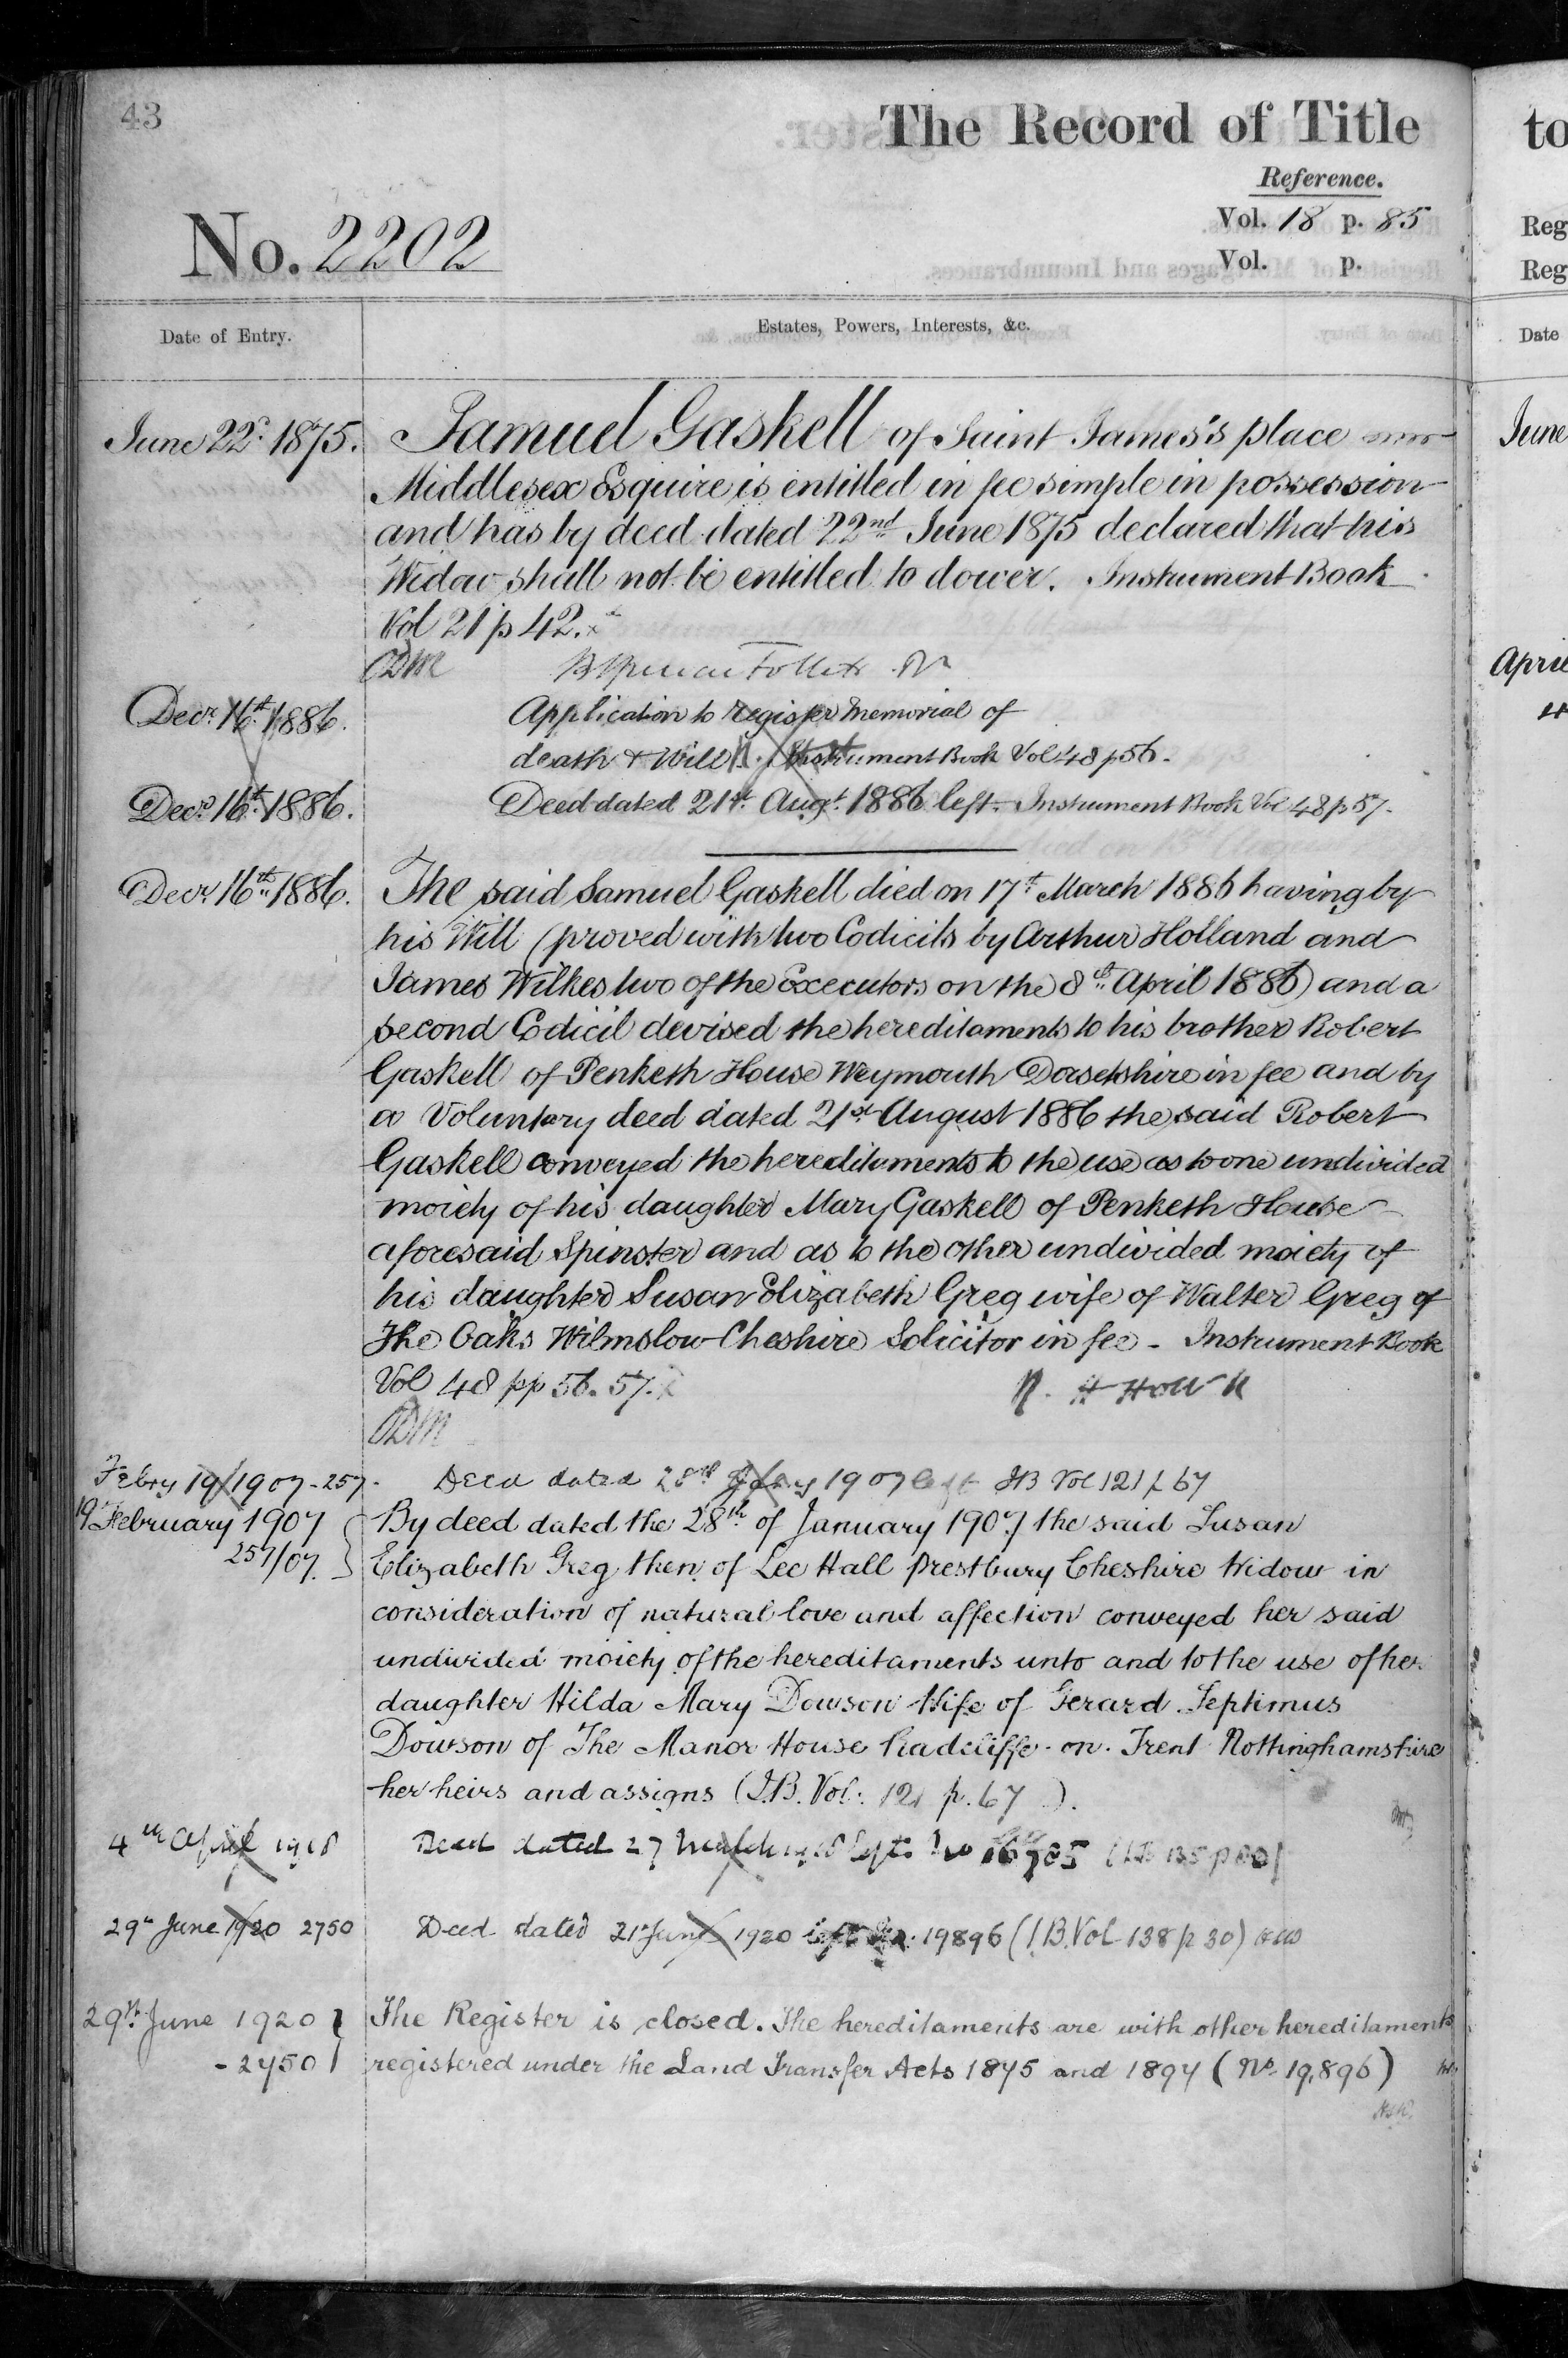 43
The Record of Title
Reference.
Vol. 18 p. 85
No. 2202
Vol. p.
Date of Entry.
Estates, Powers, Interests, &c.
June 22d. 1875.
Samuel Gaskell of Saint James's place
Middlesex Esquire is entitled in fee simple in possession
and has by deed dated 22nd June 1875 declared that his
Widow shall not be entitled to dower. Instrument Book
Vol 21 p 42.
Decr. 16th. 1886.
Application to register Memorial of
death & Will Instrument Book Vol 48 p 56.
Decr. 16th. 1886.
Deed dated 21st. Augt. 1886 left. Instrument Book Vol 48 p 57.
Decr. 16th. 1886.
The said Samuel Gaskell died on 17th March 1886 having by
his Will (proved with two Codicils by Arthur Holland and
James Wilkes two of the Executors on the 8th. April 1886) and a
second Codicil devised the hereditaments to his brother Robert
Gaskell of Penketh House Weymouth Dorsetshire in fee and by
a Voluntary deed dated 21st August 1886 the said Robert
Gaskell conveyed the hereditaments to the use as to one undivided
moiety of his daughter Mary Gaskell of Penketh House
aforesaid Spinster and as to the other undivided moiety of
his daughter Susan Elizabeth Greg wife of Walter Greg of
The Oaks Wilmslow Cheshire Solicitor in fee - Instrument Book
Vol 48 pp 56. 57.
Febry 19/1907 - 257.
Deed dated 28th 1907 left IB Vol 121 p 67
19 February 1907
257/07.
By deed dated the 28th of January 1907 the said Susan
Elizabeth Greg then of Lee Hall Prestbury Cheshire Widow in
consideration of natural love and affection conveyed her said
undivided moiety of the hereditaments unto and to the use of her
daughter Hilda Mary Dowson Wife of Gerard Septimus
Dowson of The Manor House Radcliffe-on-Trent Nottinghamshire
her heirs and assigns (I.B. Vol. 121 p. 67 ).
4th April 1918
Deed dated 27 March 1918 left.
29th June 1920 2750
Deed dated 21st June 1920 left 19896 (I.B. Vol 138 p 30)
29th. June 1920
- 2750
The Register is closed. The hereditaments are with other hereditaments
registered under the Land Transfer Acts 1875 and 1897 (No. 19,896)
to
Reg
Reg
Date
June
April